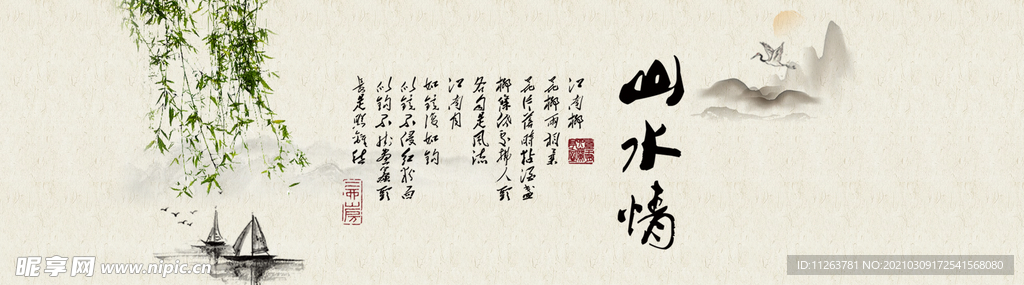 山水情
江南柳
花柳两相柔
花片落时粘酒盏
柳条低处拂人头
各自是风流
江南月
如镜复如钩
似镜不侵红粉面
似钩不挂画帘头
长是照离愁
昵享网 www.nipic.cn
ID:11263781 NO:20210309172541568080